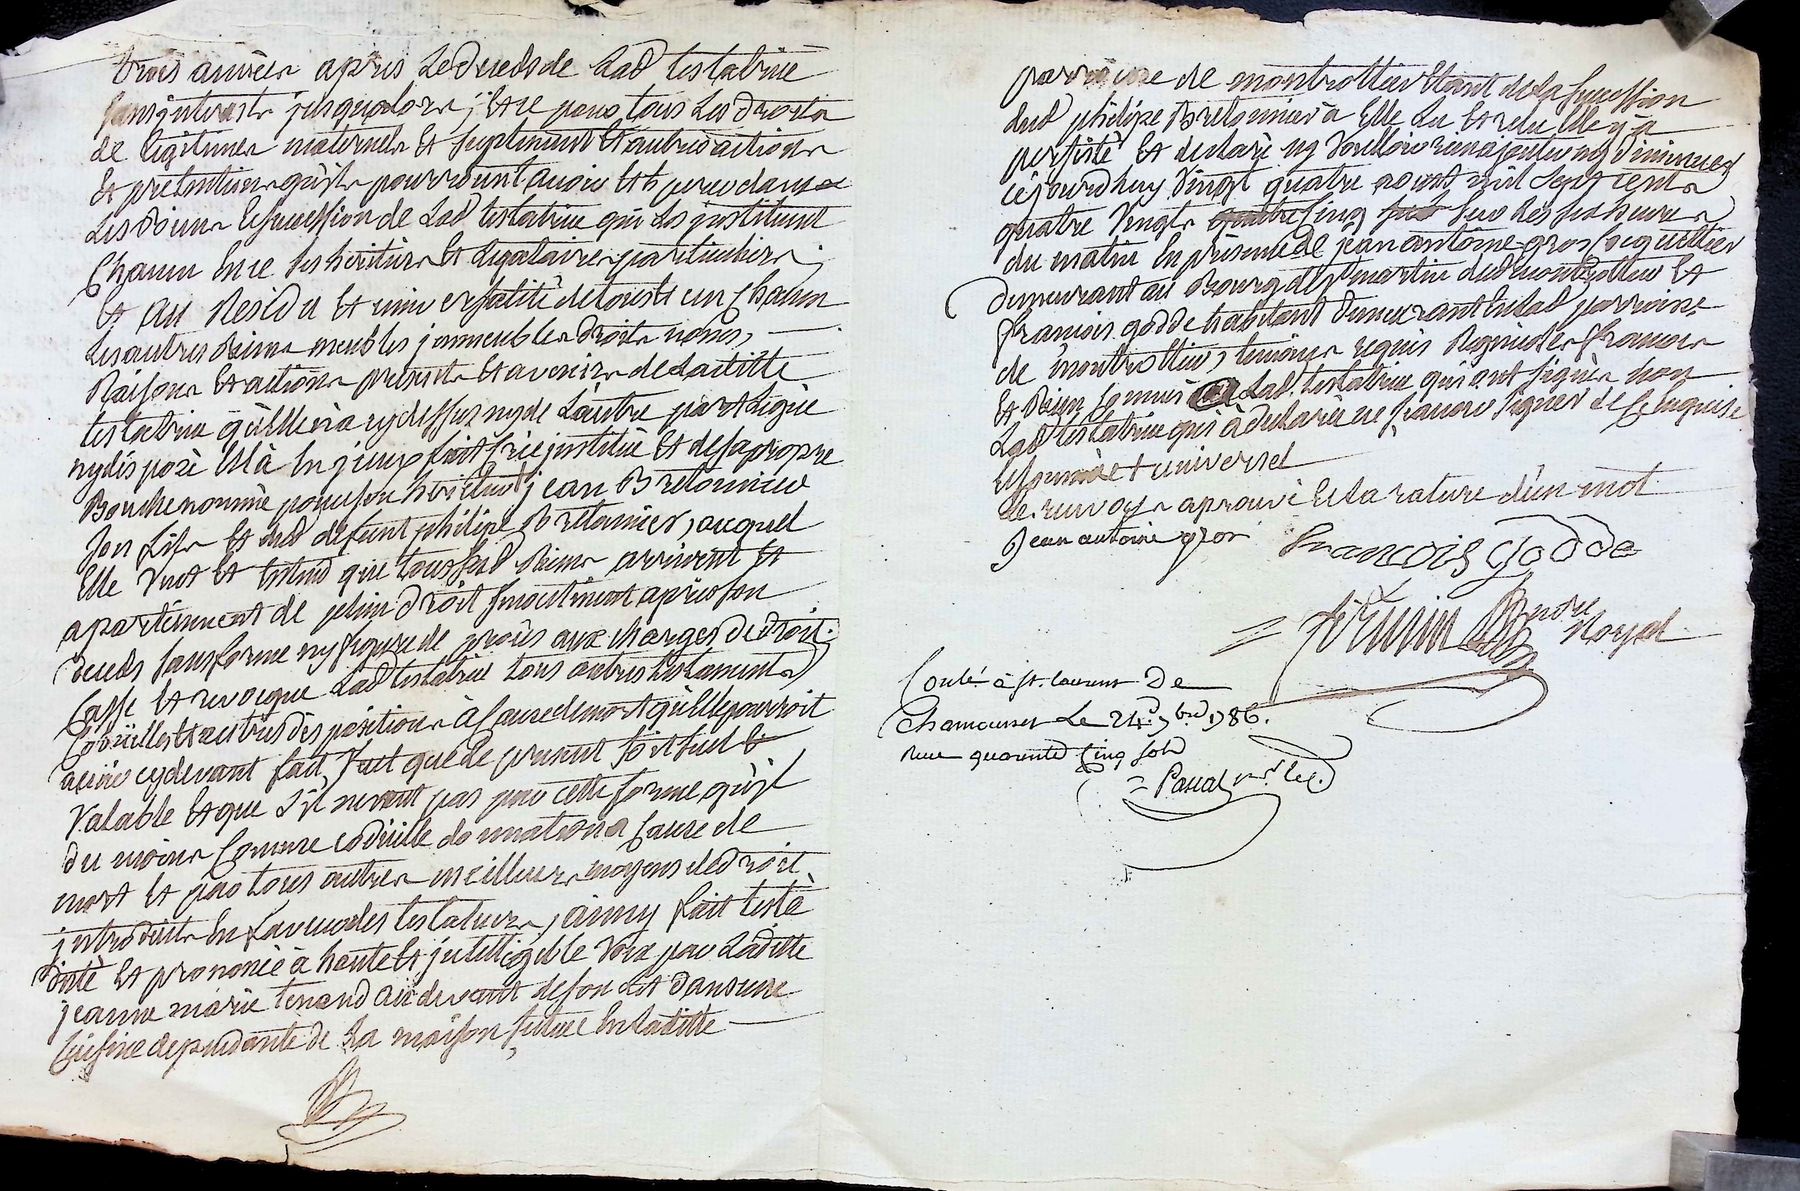 trois années après Le deceds de Lad testatrice
sans jnterests jusqualors ; Et ce pour tous Les droits
de legitimes maternels Et suplement Et autres actions
Et pretentions qu'ils pourroient avoir Et esperer dans
Les biens Et succession de Lad testatrice qui Les jnstituent
Chacun En ce ses heritiers Et Legataires particuliers ;
Et Au Residu Et universalité de tous Et un Chacun
Les autres biens meubles jmmeubles droits noms,
Raisons Et actions presents Et avenirs de Laditte
testatrice qu'elle n'a cy dessus ny de L'autre part Legué
ny disposé Elle à En jceux fait crée jnstitué Et de sa propre
Bouche nommé pour son heritier jean Bretonnier
son fils Et dud defunt philipe Bretonnier, auquel
Elle veut Et Entend que tous sesd biens arrivent Et
apartiennent de plein droit jncontinent apres son
deceds sans forme ny figure de procès aux charges de droit.
Casse Et revoque Lad testatrice tous autres testaments
Codicilles Et autres dispositions à Cause de mort qu'elle pourroit
avoir cy devant fait veut que Le present soit seul
valable Et que s'il ne vaut pas pour cette forme qu'il
du moins Comme codicille donnation a Cause de
mort Et par tous autres meilleurs moyens de droit
jntroduits En faveur des testateurs, ainsy fait testé
dicté Et prononcé à haute Et jntelligible voix par Laditte
jeanne marie tenand au devant de son Lit dans une
Cuisine dependante de sa maison située En laditte
parroisse de montrottier Etant de la succession
dud philipe Bretonnier à Elle Lu Et relu Elle y à
persisté Et declaré ny vouloir rien ajouter ny diminuer
cejourdhuy vingt quatre aoust mil sept cents
quatre vingts cinq sur Les six heures
du matin En presence de jean antoine gros coquettier
demeurant au Bourg de st martin dud montrottier Et
françois godde habitant demeurant En lad parroisse
de montrottier, temoins requis Regnicoles françois
Et Bien connus Lad. testatrice qui ont signés non
Lad testatrice qui à declaré ne sçavoir signer de ce Enquise
Et sommée + universel
Le renvoy aprouvé Et la rature d'un mot
Jean antoine gros
francois godde
nore Royal
Conlé à st. laurent De
Chamousset Le 24. 7bre 1786.
reçu quarente Cinq sols
= Pascal